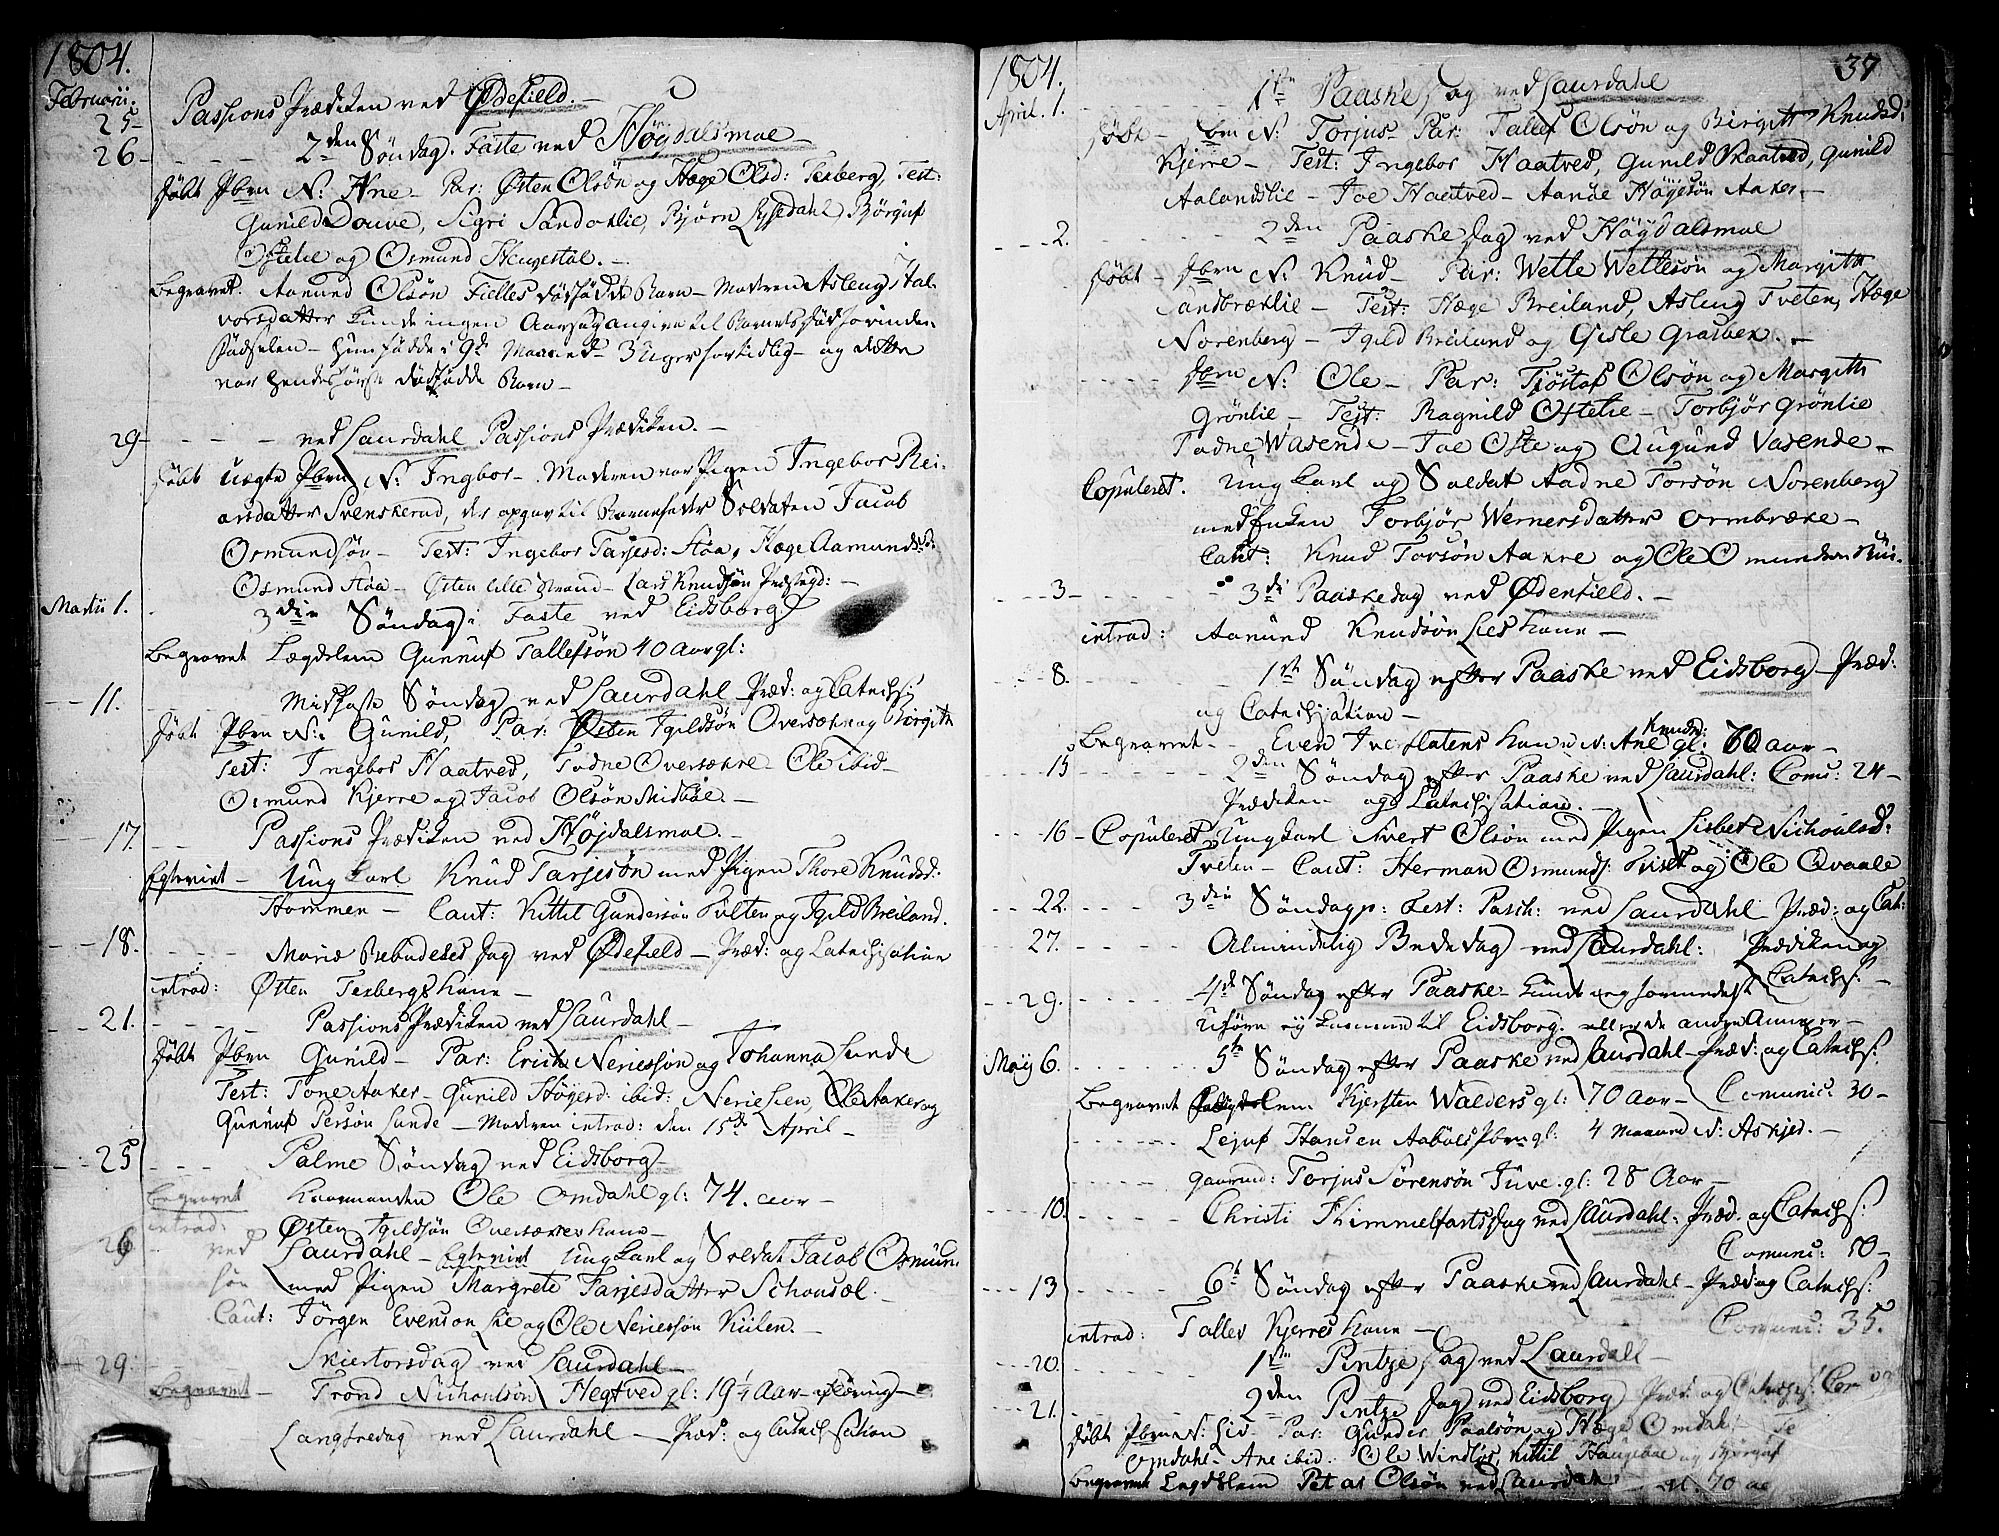 1804.
Februarii.
25- Passions Prædiken ved Ødefield. -
26- 2den Søndag i Faste ved Høydalsmoe -
døbt Pbrn N: Ane - Par: Østen Olsøn og Hæge Olsd: Texberg, Test:
Gunild Douve, Sigri Sandoklie, Bjørn Lysedahl, Bjørguf
Ofstelie og Osmund Heugestøl. -
Begravet. Aamund Olsøn Fielles dødfødde Barn - Moderen Asleug Hal-
vorsdatter kunde ingen Aarsag angive til Barnets død forinden
fødselen - hun fødde i 9de Maaned 3 Uger for tidlig - og dette
var hendes første dødfødde Barn -
29- - - - ved Laurdahl Passions Prædiken. -
døbt uægte Pbrn N: Ingbor - Moderen var Pigen Ingebor Rei-
arsdatter Svenskerud, der opgav til Barnefader Soldaten Jacob
Osmundsøn - Test: Ingebor Tarjesd: Høa, Hæge Aamundsd:
Osmund Høa - Østen Lille Strand - Lars Knudsøn Præstegd: -
Martii 1. 3die Søndag i Faste ved Eidsborg
Begravet Lægdslem Gunnuf Tallefsøn 40 Aar gl:
11. Midfaste Søndag ved Laurdahl Præd: og Catechs:
døbt Pbrn N: Gunild, Par: Østen Igildsøn Oversøkne og Birgith
Test: Ingebor Haatved, Tadne Oversøkne - Ole ibid -
Osmund Kjerre og Jacob Olsøn Midbøe. -
17. Passions Prædiken ved Høydalsmoe. -
Egteviet - Ung Karl Knud Tarjesøn med Pigen Thore Knudsd:
Hommen - Caut: Kittil Gundersøn Tvlten og Igild Breiland.
18. Mariæ Bebudelses Dag ved Ødefield - Præd: og Catechisation
introd: Østen Texbergs Kone -
21. Passions Prædiken ved Laurdahl -
døbt Pbrn Gunild - Par: Erich Neriessøn og Johanna Lunde
Test: Tone Aaker - Gunild Høgesd: ibid: Neriesien, Ole Aaker og
Gunnuf Persøn Lunde - Moderen introd: den 15de April -
25 Palme Søndag ved Eidsborg -
Begravet Kaarmanden Ole Omdahl gl: 74. aar -
introd: Østen Igildsøn Oversøknes Kone -
26 ved Laurdahl - Egteviet Ung Karl og Soldat Jacob Osmun-
søn med Pigen Margrete Tarjesdatter Schousøl. -
Caut: Jørgen Evenson Lie og Ole Neriessøn Kiilen. -
29. Skiertorsdag ved Laurdahl -
Begravet - Trond Nichoulsøn Hegtved gl: 19¼ Aar -
Langfredag ved Laurdahl - Præd: og Catechisation
1804. 37
April. 1. 1te Paaske Dag ved Laurdahl
døbt - Pbrn N: Torjus - Par: Tallef Olsøn og Birgith Knudsd:
Kjerre - Test: Ingebor Haatved, Gunild Skaatved, Gunild
Aalandslie - Joe Haatved - Aande Høyesøn Aaker. -
2. 2den Paaske Dag ved Høydalsmoe
døbt - Pbrn N: Knud - Par: Wetle Wettesøn og Margith
Sandbræklie - Test: Hæge Breiland, Asleug Tveten, Hæge
Norenberg - Igild Breiland og Gisle Grauben. -
Pbrn N: Ole - Par: Tjøstaf Olsøn og Margith
Grønlie - Test: Ragnild Ofstelie - Torbjør Grønlie
Tadne Wasende - Joe Ofte og Augund Vasende -
Copuleret. Ung Karl og Soldat Aadne Torsøn Norenberg
med Enken Torbjør Wernersdatter Ormbræke -
Caut: Knud Torsøn Aakre og Ole Omundsen
3 - 3di Paaskedag ved Ødenfield. -
introd: Aamund Knudsøn Lies Kone -
8. 1ste Søndag efter Paaske ved Eidsborg - Præd:
og Catechisation -
Begravet - Even Tveitatens Kone N: Ane Knudsd: gl: 70 aar -
15 2den Søndag efter Paaske ved Laurdahl: Comu: 24 -
Prædiken og Catechisation. -
16 - Copuleret Ung Karl Sivert Olsøn med Pigen Lisbet Nichoulsd:
Tveten - Caut: Herman Osmunds: Tvist og Ole Qvaale
22. 3die Søndag p: Fest: Pasch: ved Laurdahl Præd: og Cat:
27. Almindelig Bededag ved Laurdahl: Prædiken og
Catechs: -
29. 4de Søndag efter Paaske - kunde jeg formedelst
Uføre ey komme til Eidsborg. eller de andre Annexer -
Maij 6. 5te Søndag efter Paaske ved Laurdahl - Præd: og Catechs:
Begravet Lægdslem Kjersten Walders gl: 70 Aar - Comunic: 30 -
Lejuf Hansen Aabøes Pbrn gl: 4 Maaned N: Askjer. -
Gaarmd: Torjus Sørensøn Juve gl: 28 Aar -
10. Christi Himmelfarts Dag ved Laurdahl: Præd. og Catechs:
Comunc: 50 -
13 6te Søndag efter Paaske ved Laurdahl - Præd: og Catechs:
introd: Tallev Kjerres Kone - Comunc: 35.
20. 1ste Pintze Dag ved Laurdahl -
21. 2den Pintze Dag ved Eidsborg Præd: og Catechs: Com
døbt Pbrn N: Siv Par: Gunder Paalsøn og Hæge Omdal: Te
Omdahl - Ane ibid. Ole Windløs, Kittil Haugebøe og Bjørguf
Begravet Lægdslem Petar Olsøn ved Laurdahl gl. 70 aa